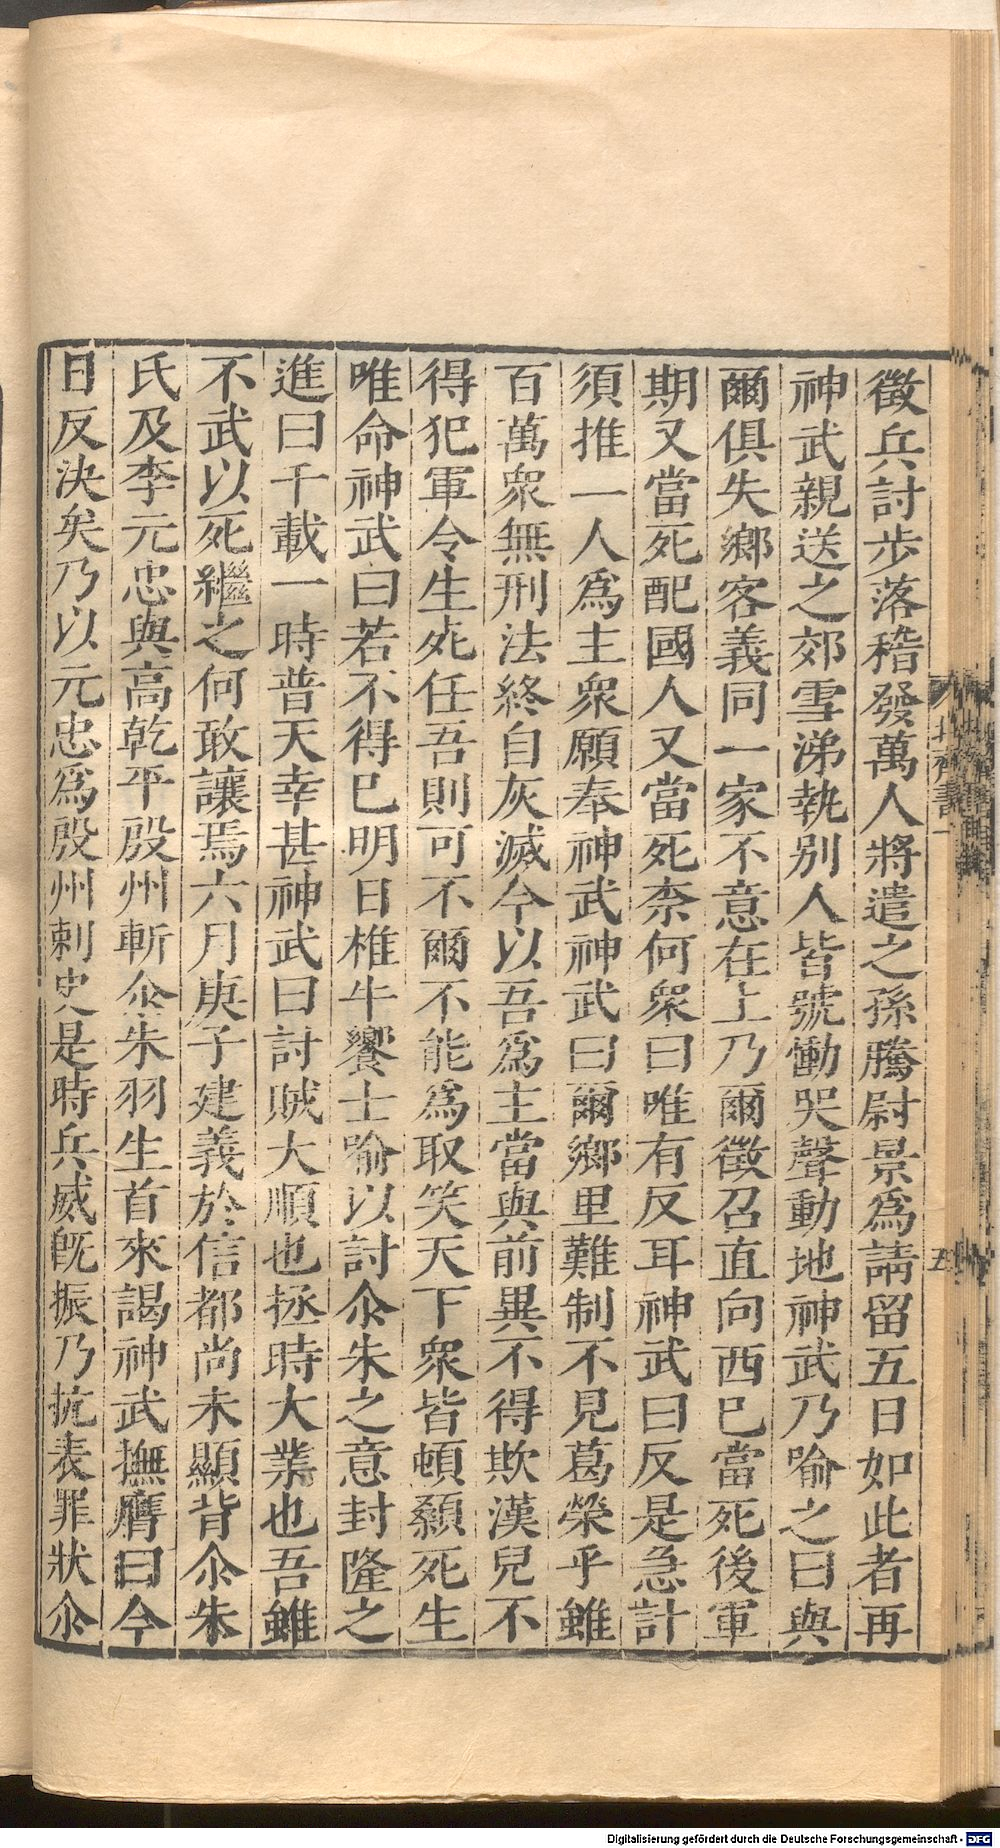 徵兵討步落稽發萬人將遣之孫騰尉景爲請留五日如此者再
神武親送之郊雪涕執別人皆號慟哭聲動地神武乃喻之曰與
爾俱失鄉客義同一家不意在上乃爾徵召直向西巳當死後軍
期又當死配國人又當死柰何衆曰唯有反耳神武曰反是急計
須推一人爲主衆願奉神武神武曰爾鄉里難制不見葛榮乎雖
百萬衆無刑法終自灰滅今以吾爲主當與前異不得欺漢兒不
得犯軍令生死任吾則可不爾不能爲取笑天下衆皆頓顙死生
唯命神武曰若不得巳明日椎牛饗士喻以討尒朱之意封隆之
進曰千載一時普天幸甚神武曰討賊大順也拯時大業也吾雖
不武以死繼之何敢讓焉六月庚子建義於信都尚未顯背尒朱
氏及李元忠與高乾平殷州斬尒朱羽生首來謁神武撫膺曰今
日反決矣乃以元忠爲殷州刺史是時兵威旣振乃抗表罪狀尒
北齊書一
五
Digitalisierung gefördert durch die Deutsche Forschungsgemeinschaft - DFG